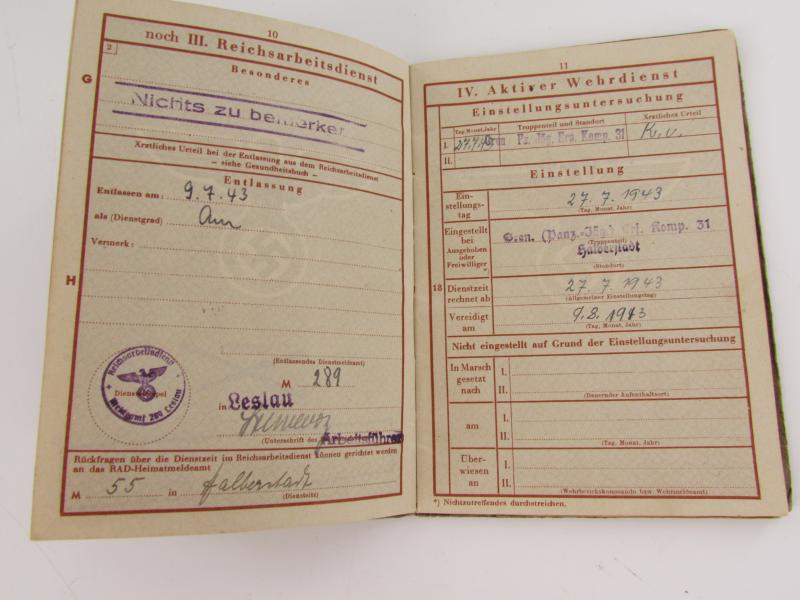 10
noch III. Reichsarbeitsdienst
2
Besonderes
G
Nichts zu bemerken
Ärztliches Urteil bei der Entlassung aus dem Reichsarbeitsdienst
– siehe Gesundheitsbuch –
Entlassung
Entlassen am: 9.7.43
als (Dienstgrad) Am
Vermerk:
H
(Entlassendes Dienstmeldeamt)
M 289
Reichsarbeitsdienst
Dienststempel
Meldeamt 289 Leslau
in Leslau
(Unterschrift des
Arbeitsführer
Rückfragen über die Dienstzeit im Reichsarbeitsdienst können gerichtet werden
an das RAD-Heimatmeldeamt
M 55 in Halberstadt
(Dienstsitz)
11
IV. Aktiver Wehrdienst
Einstellungsuntersuchung
Tag, Monat, Jahr
Truppenteil und Standort
Ärztliches Urteil
I. Gren Pz. Jäg. Ers. Komp. 31 K.v.
II.
Einstellung
Ein-
stellungs-
tag
27. 7. 1943
(Tag, Monat, Jahr)
Eingestellt
bei
Ausgehoben
oder
Freiwilliger
Gren. (Panz.-Jäg.) Ers. Komp. 31
(Truppenteil)
Halberstadt
(Standort)
18
Dienstzeit
rechnet ab
27. 7. 1943
(Allgemeiner Einstellungstag)
Vereidigt
am
9.8.1943
(Tag, Monat, Jahr)
Nicht eingestellt auf Grund der Einstellungsuntersuchung
In Marsch
gesetzt
nach
I.
II.
(Dauernder Aufenthaltsort)
am
I.
II.
(Tag, Monat, Jahr)
Über-
wiesen
an
I.
II.
(Wehrbezirkskommando bzw. Wehrmeldeamt)
*) Nichtzutreffendes durchstreichen.